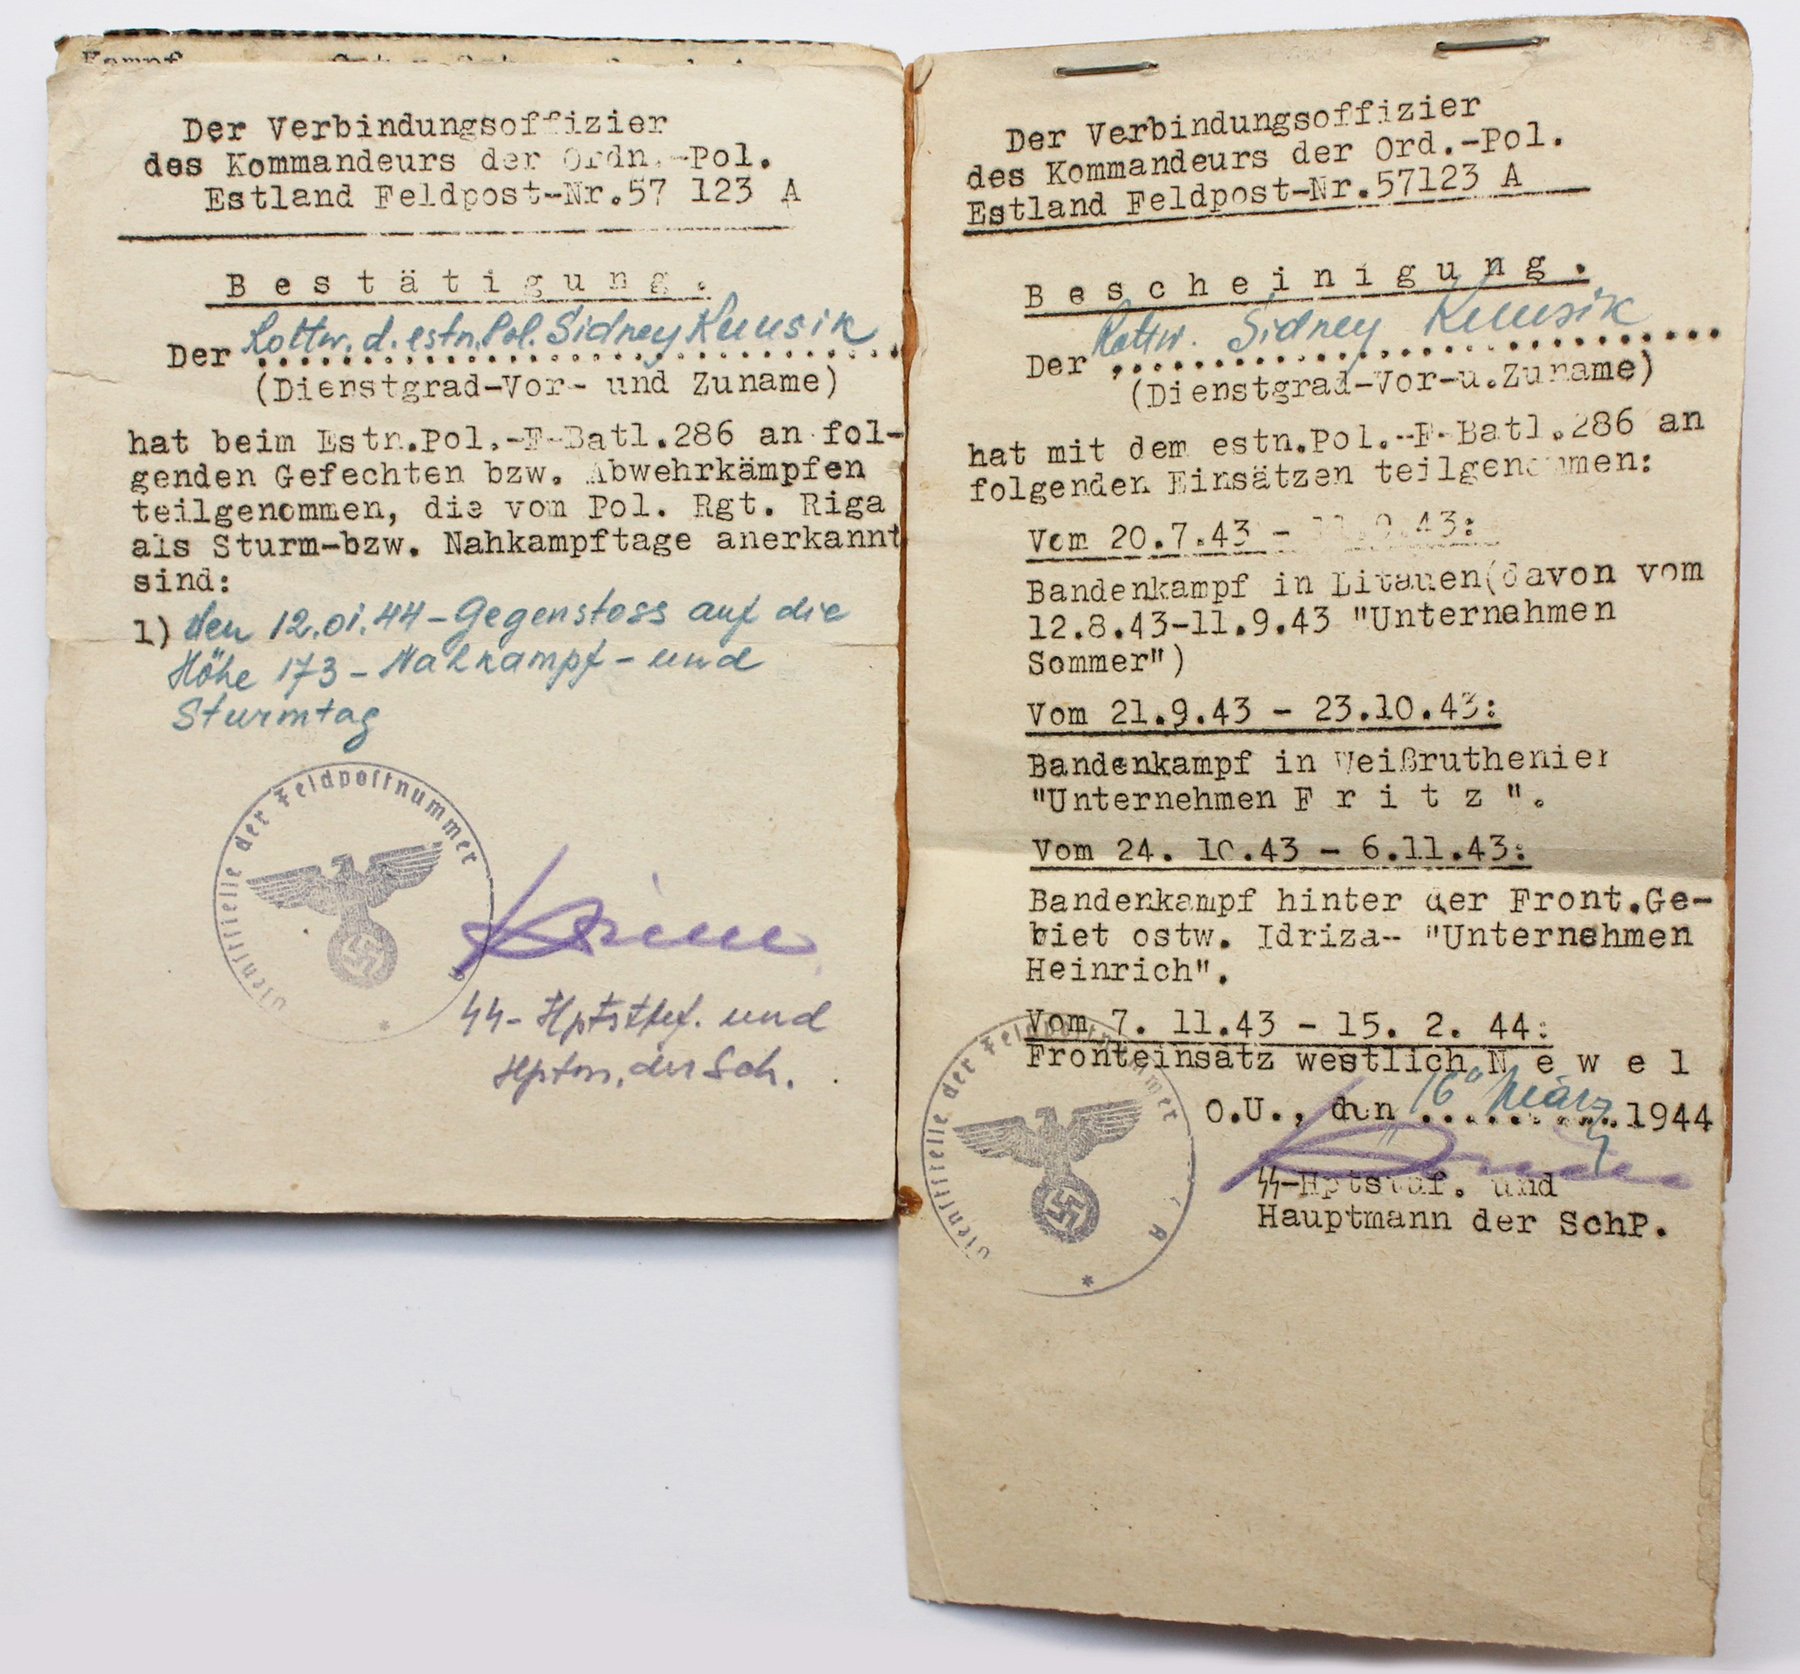 Kampf
Der Verbindungsoffizier
des Kommandeurs der Ordn.-Pol.
Estland Feldpost-Nr.57 123 A
Bestätigung.
Der Rottw. d. estn. Pol. Sidney Kuusik
(Dienstgrad-Vor- und Zuname)
hat beim Estn.Pol.-F-Batl.286 an fol-
genden Gefechten bzw. Abwehrkämpfen
teilgenommen, die vom Pol. Rgt. Riga
als Sturm-bzw. Nahkampftage anerkannt
sind:
1) den 12.01.44 - Gegenstoss auf die
Höhe 173 - Nahkampf - und
Sturmtag
Dienststelle der Feldpostnummer
SS- Hptstuf. und
Hptm. der Sch.
Der Verbindungsoffizier
des Kommandeurs der Ord.-Pol.
Estland Feldpost-Nr.57123 A
Bescheinigung.
Der Rottw. Sidney Kuusik
(Dienstgrad-Vor-u.Zuname)
hat mit dem estn.Pol.-F-Batl.286 an
folgenden Einsätzen teilgenommen:
Vom 20.7.43 - 11.9.43:
Bandenkampf in Litauen(davon vom
12.8.43-11.9.43 "Unternehmen
Sommer")
Vom 21.9.43 - 23.10.43:
Bandenkampf in Weißruthenien
"Unternehmen Fritz".
Vom 24. 10.43 - 6.11.43:
Bandenkampf hinter der Front.Ge-
biet ostw. Idriza- "Unternehmen
Heinrich".
Vom 7. 11.43 - 15. 2. 44:
Fronteinsatz westlich Newel
O.U., den 16. März 1944
SS-Hptstuf. und
Hauptmann der SchP.
Dienststelle der Feldpostnummer